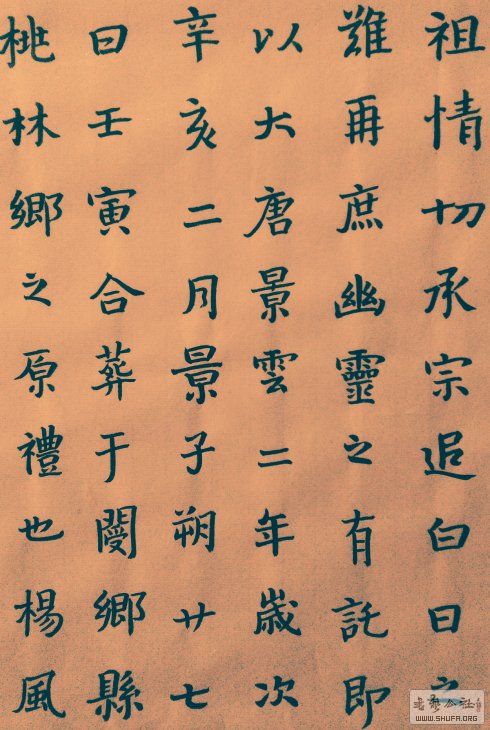 祖情切承宗追白日之
難再庶幽靈之有託即
以大唐景雲二年歲次
辛亥二月景子朔廿七
日壬寅合葬于閿鄉縣
桃林鄉之原禮也楊風
WWW.SHUFA.ORG